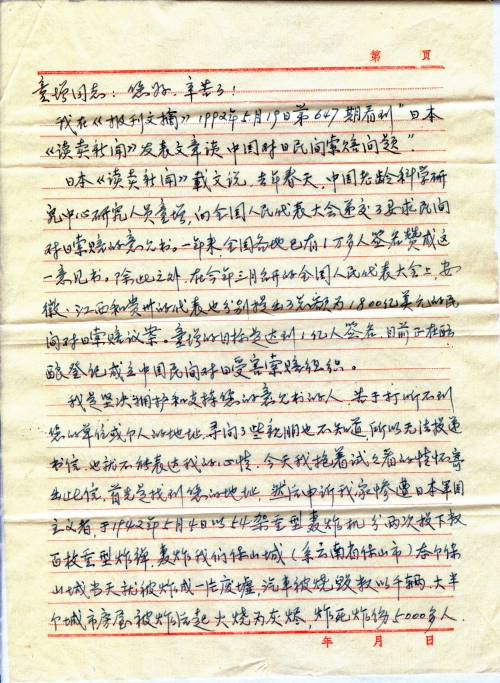 第 页
童增同志：您好，辛苦了！
我在《报刊文摘》1992年5月19日第647期看到"日本
《读卖新闻》发表文章谈中国对日民间索赔问题"。
日本《读卖新闻》载文说，去年春天，中国老龄科学研
究中心研究人员童增，向全国人民代表大会递交了要求民间
对日索赔的意见书。一年来，全国各地已有1万多人签名赞成这
一意见书。除此之外，在今年三月召开的全国人民代表大会上，安
徽、江西和贵州的代表也分别提出了总额为1800亿美元的民
间对日索赔议案。童增的目标是达到1亿人签名，目前正在酝
酿登记成立中国民间对日受害索赔组织。
我是坚决拥护和支持您的意见书的人，苦于打听不到
您的单位或个人的地址，寻问了些亲朋也不知道，所以无法投递
书信，也就不能表达我的心情，今天我抱着试试看的情怀寄
出此信，首先是找到您的地址，然后申诉我家惨遭日本军国
主义者，于1942年5月4日以54架重型轰炸机分两次投下数
百枚重型炸弹，轰炸我们保山城（系云南省保山市）整个保
山城当天就被炸成一片废墟，汽车被烧毁数以千辆，大半
个城市房屋被炸后起大烧为灰烬，炸死炸伤5000多人．
年 月 日